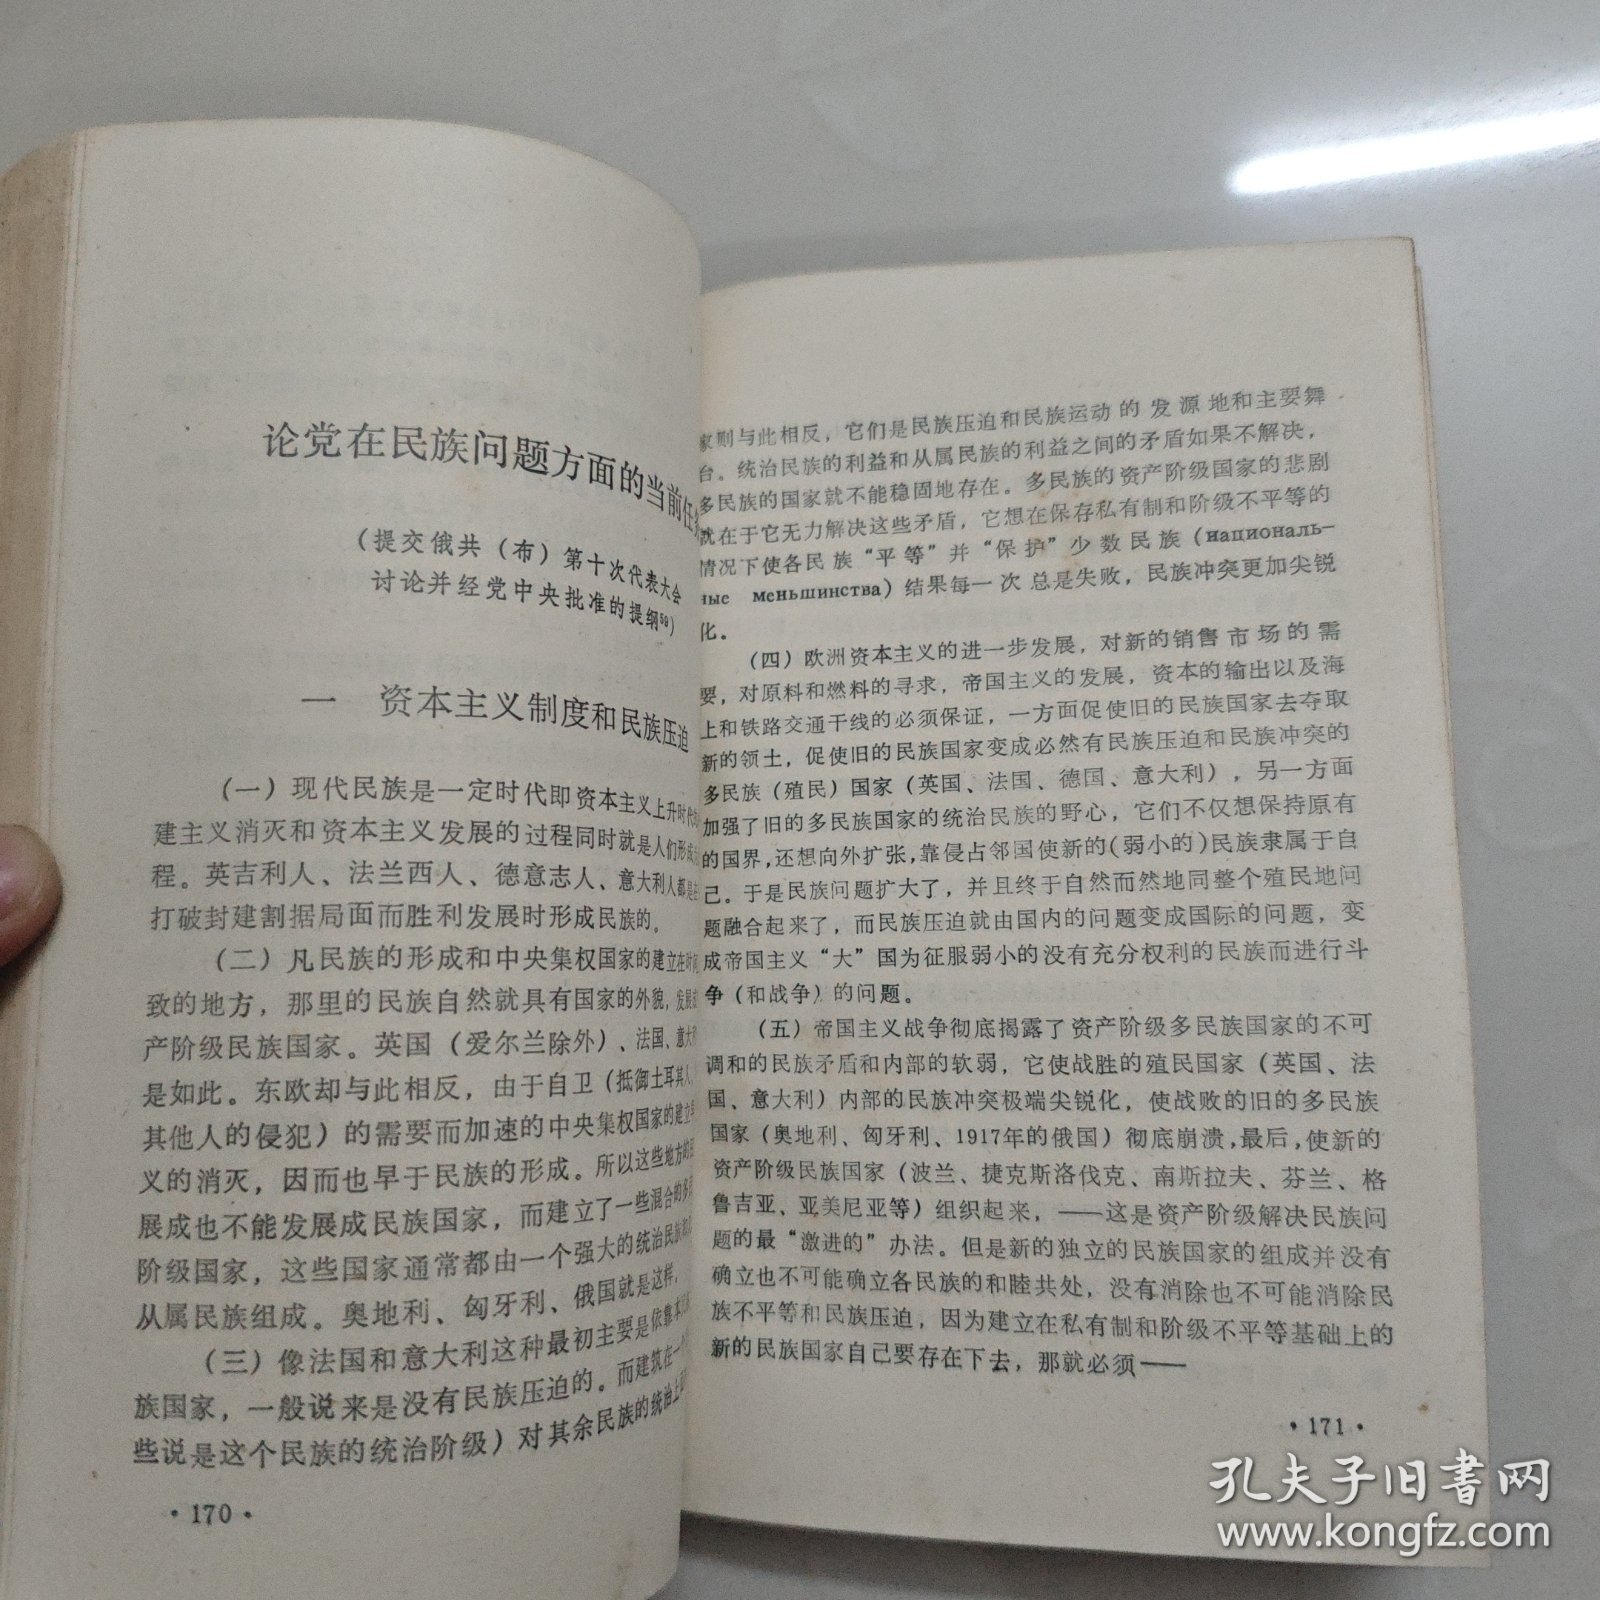 论党在民族问题方面的当前任
（提交俄共（布）第十次代表大会
讨论并经党中央批准的提纲⁵⁹）
一 资本主义制度和民族压迫
（一）现代民族是一定时代即资本主义上升时代
建主义消灭和资本主义发展的过程同时就是人们形成
程。英吉利人、法兰西人、德意志人、意大利人都是在
打破封建割据局面而胜利发展时形成民族的。
（二）凡民族的形成和中央集权国家的建立在时间
致的地方，那里的民族自然就具有国家的外貌，发展
产阶级民族国家。英国（爱尔兰除外）、法国、意大利
是如此。东欧却与此相反，由于自卫（抵御土耳其人、
其他人的侵犯）的需要而加速的中央集权国家的建立
义的消灭，因而也早于民族的形成。所以这些地方的
展成也不能发展成民族国家，而建立了一些混合的多
阶级国家，这些国家通常都由一个强大的统治民族和
从属民族组成。奥地利、匈牙利、俄国就是这样。
（三）像法国和意大利这种最初主要是依靠本
族国家，一般说来是没有民族压迫的。而建筑在一个
些说是这个民族的统治阶级）对其余民族的统治上
·170·
家则与此相反，它们是民族压迫和民族运动的发源地和主要舞
台。统治民族的利益和从属民族的利益之间的矛盾如果不解决，
多民族的国家就不能稳固地存在。多民族的资产阶级国家的悲剧
就在于它无力解决这些矛盾，它想在保存私有制和阶级不平等的
情况下使各民族“平等”并“保护”少数民族（националь-
ные меньшинства）结果每一次总是失败，民族冲突更加尖锐
化。
（四）欧洲资本主义的进一步发展，对新的销售市场的需
要，对原料和燃料的寻求，帝国主义的发展，资本的输出以及海
上和铁路交通干线的必须保证，一方面促使旧的民族国家去夺取
新的领土，促使旧的民族国家变成必然有民族压迫和民族冲突的
多民族（殖民）国家（英国、法国、德国、意大利），另一方面
加强了旧的多民族国家的统治民族的野心，它们不仅想保持原有
的国界，还想向外扩张，靠侵占邻国使新的（弱小的）民族隶属于自
己。于是民族问题扩大了，并且终于自然而然地同整个殖民地问
题融合起来了，而民族压迫就由国内的问题变成国际的问题，变
成帝国主义“大”国为征服弱小的没有充分权利的民族而进行斗
争（和战争）的问题。
（五）帝国主义战争彻底揭露了资产阶级多民族国家的不可
调和的民族矛盾和内部的软弱，它使战胜的殖民国家（英国、法
国、意大利）内部的民族冲突极端尖锐化，使战败的旧的多民族
国家（奥地利、匈牙利、1917年的俄国）彻底崩溃，最后，使新的
资产阶级民族国家（波兰、捷克斯洛伐克、南斯拉夫、芬兰、格
鲁吉亚、亚美尼亚等）组织起来，——这是资产阶级解决民族问
题的最“激进的”办法。但是新的独立的民族国家的组成并没有
确立也不可能确立各民族的和睦共处，没有消除也不可能消除民
族不平等和民族压迫，因为建立在私有制和阶级不平等基础上的
新的民族国家自己要存在下去，那就必须——
·171·
孔夫子旧书网
www.kongfz.com